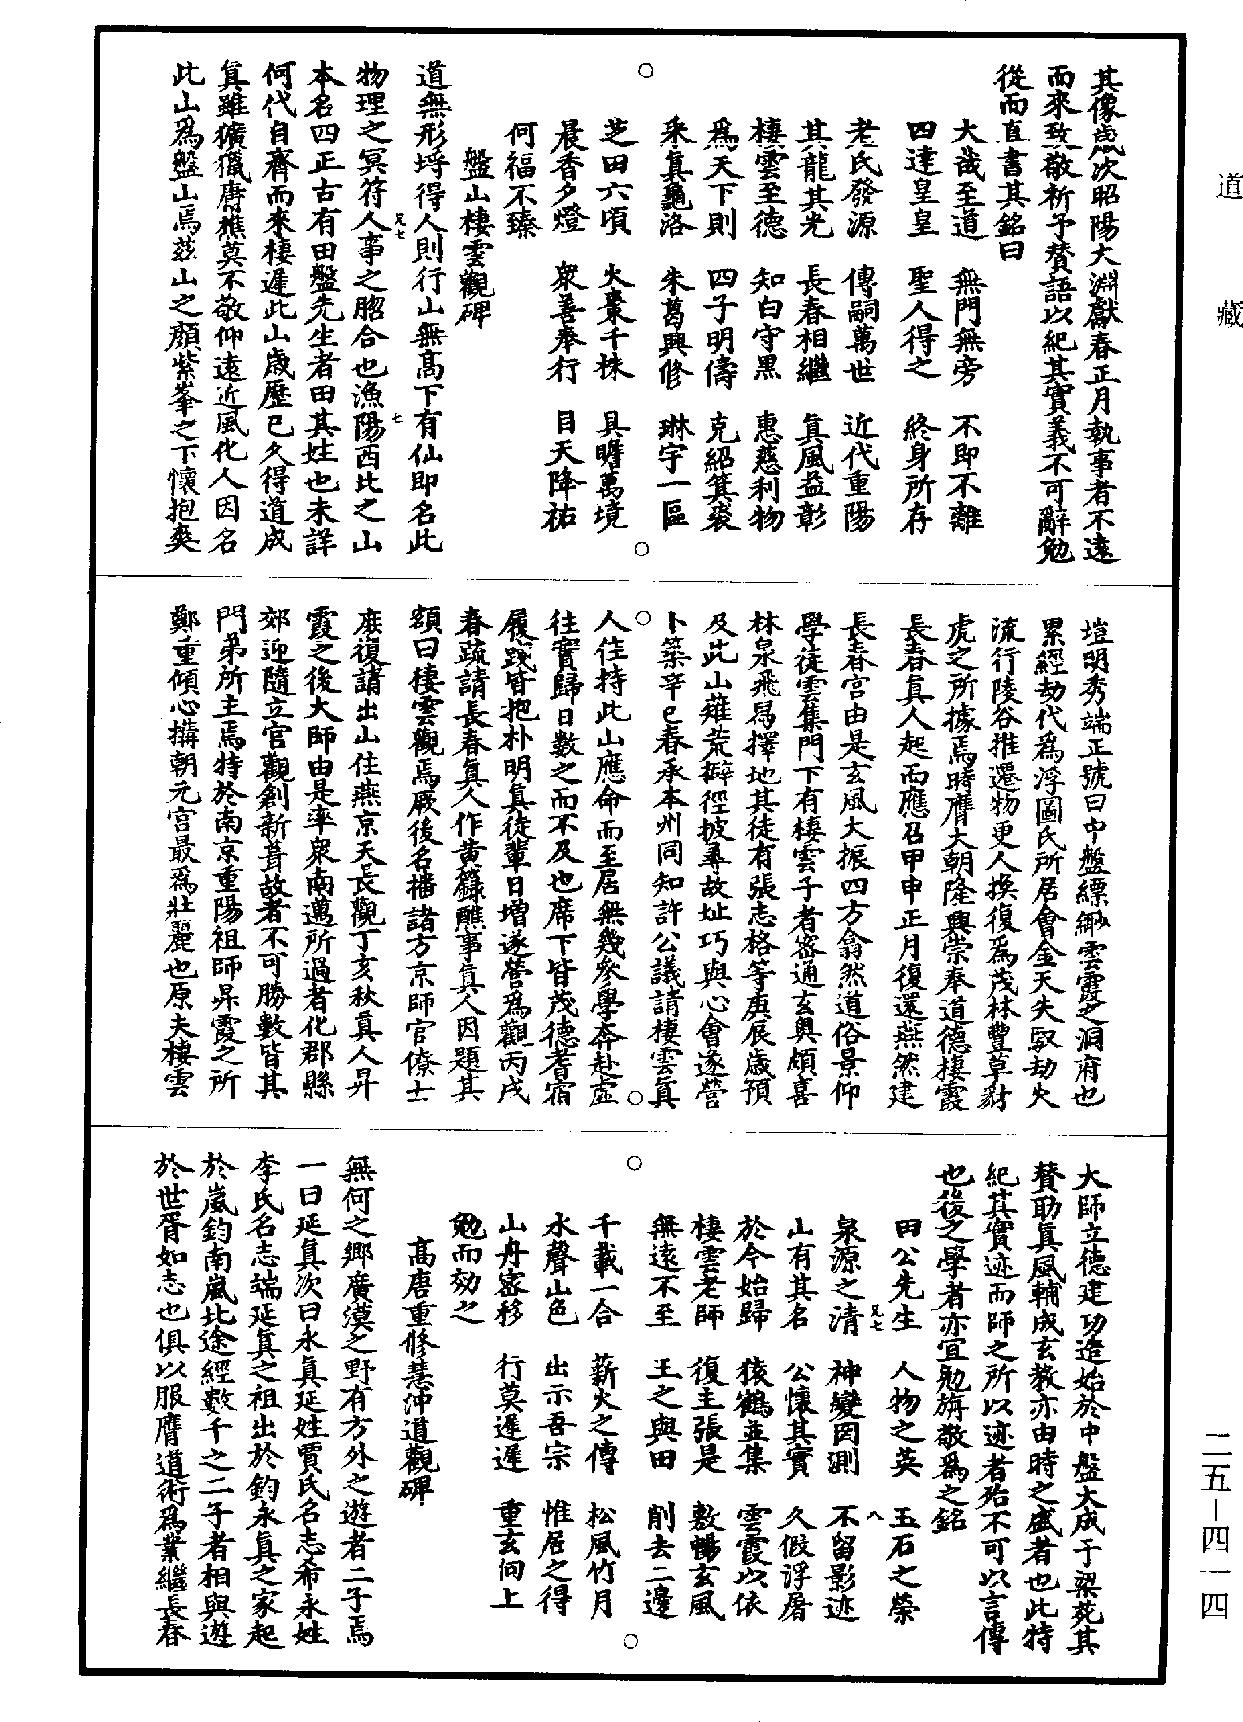 道藏
其像歲次昭陽大淵獻春正月執事者不遠
而來致敬祈予贊語以紀其實義不可辭勉
從而直書其銘曰
大哉至道　無門無旁　不即不離
四達皇皇　聖人得之　終身所存
老氏發源　傳嗣萬世　近代重陽
其龍其光　長春相繼　真風益彰
棲雲至德　知白守黑　惠慈利物
為天下則　四子明儔　克紹箕裘
采真龜洛　朱葛興修　琳宇一區
芝田六頃　火棗千株　具瞻萬境
晨香夕燈　眾善奉行　目天降祐
何福不臻
盤山棲雲觀碑
道無形埒得人則行山無高下有仙即名此
物理之冥符人事之脗合也漁陽西北之山
本名四正古有田盤先生者田其姓也未詳
何代自齊而來棲遲此山歲歷已久得道成
真雖獷獵唐樵莫不敬仰遠近風化人因名
此山為盤山焉茲山之顛紫峯之下懷抱爽
塏明秀端正號曰中盤縹緲雲霞之洞府也
累經劫代為浮圖氏所居會金天失馭劫火
流行陵谷推遷物更人換復為茂林豐草豺
虎之所據焉時膺大朝隆興崇奉道德棲霞
長春真人起而應召甲申正月復還燕然建
長春宮由是玄風大振四方翕然道俗景仰
學徒雲集門下有棲雲子者密通玄奧頗喜
林泉飛舄擇地其徒有張志格等庚辰歲預
及此山薙荒擗徑披尋故址巧與心會遂營
卜築辛巳春承本州同知許公議請棲雲真
人住持此山應命而至居無幾參學奔赴虛
往實歸日數之而不及也席下皆茂德耆宿
履踐皆抱朴明真徒輩日增遂營為觀丙戌
春疏請長春真人作黃籙醮事真人因題其
額曰棲雲觀焉厥後名播諸方京師官僚士
庶復請出山住燕京天長觀丁亥秋真人昇
霞之後大師由是率眾南邁所過者化郡縣
郊迎隨立宮觀創新葺故者不可勝數皆其
門弟所主焉特於南京重陽祖師昇霞之所
鄭重傾心搆朝元宮最為壯麗也原夫棲雲
大師立德建功造始於中盤大成于梁苑其
贊助真風輔成玄教亦由時之盛者也此特
紀其實迹而師之所以迹者殆不可以言傳
也後之學者亦宜勉旃敬為之銘
田公先生　人物之英　玉石之榮
泉源之清　神變罔測　不留影迹
山有其名　公懷其實　久假浮屠
於今始歸　猿鶴並集　雲霞以依
棲雲老師　復主張是　敷暢玄風
無遠不至　王之與田　削去二邊
千載一合　薪火之傳　松風竹月
水聲山色　出示吾宗　惟居之得
山舟密移　行莫遲遲　重玄向上
勉而効之
高唐重修慧沖道觀碑
無何之鄉廣漠之野有方外之遊者二子焉
一曰延真次曰永真延姓賈氏名志希永姓
李氏名志端延真之祖出於鈞永真之家起
於嵐鈞南嵐北途經數千之二子者相與遊
於世胥如志也俱以服膺道術為業繼長春
二五—四一四